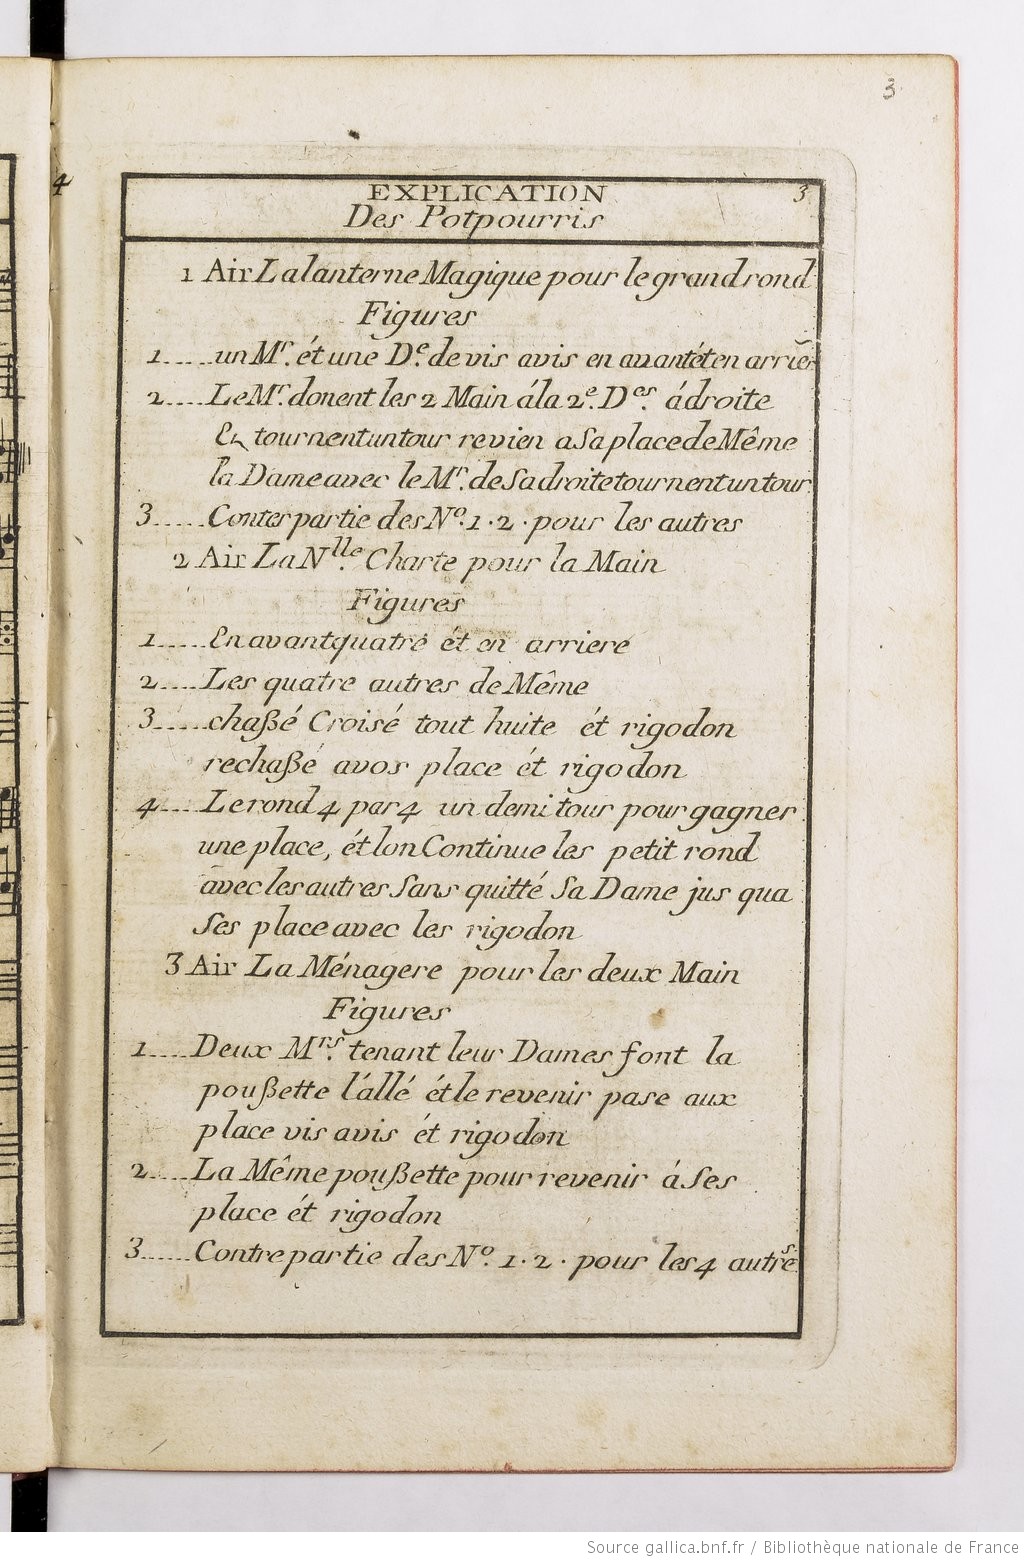 3
4
EXPLICATION 3
Des Potpourris
1 Air La lanterne Magique pour le grand rond
Figures
1.....un Mr. ét une De. de vis avis en avant ét en arriere
2.....Le Mr. donent les 2 Main á la 2e. Des. á droite
En tournent un tour revien a Sa place de Même
la Dame avec le Mr. de Sa droite tournent un tour
3.....Conter partie des No. 1 . 2 . pour les autres
2 Air La Nlle. Charte pour la Main
Figures
1.....En avant quatre ét en arriere
2.....Les quatre autres de Même
3.....chaßé Croisé tout huite ét rigodon
rechaßé avos place ét rigodon
4.....Le rond 4 par 4 un demi tour pour gagner
une place, ét lon Continue les petit rond
avec les autres Sans quitté Sa Dame jus qua
Ses place avec les rigodon
3 Air La Ménagere pour les deux Main
Figures
1.....Deux Mrs. tenant leur Dames font la
poußette l'állé ét le revenir pase aux
place vis avis ét rigodon
2.....La Même poußette pour revenir á Ses
place ét rigodon
3.....Contre partie des No. 1 . 2 . pour les 4 autres
Source gallica.bnf.fr / Bibliothèque nationale de France